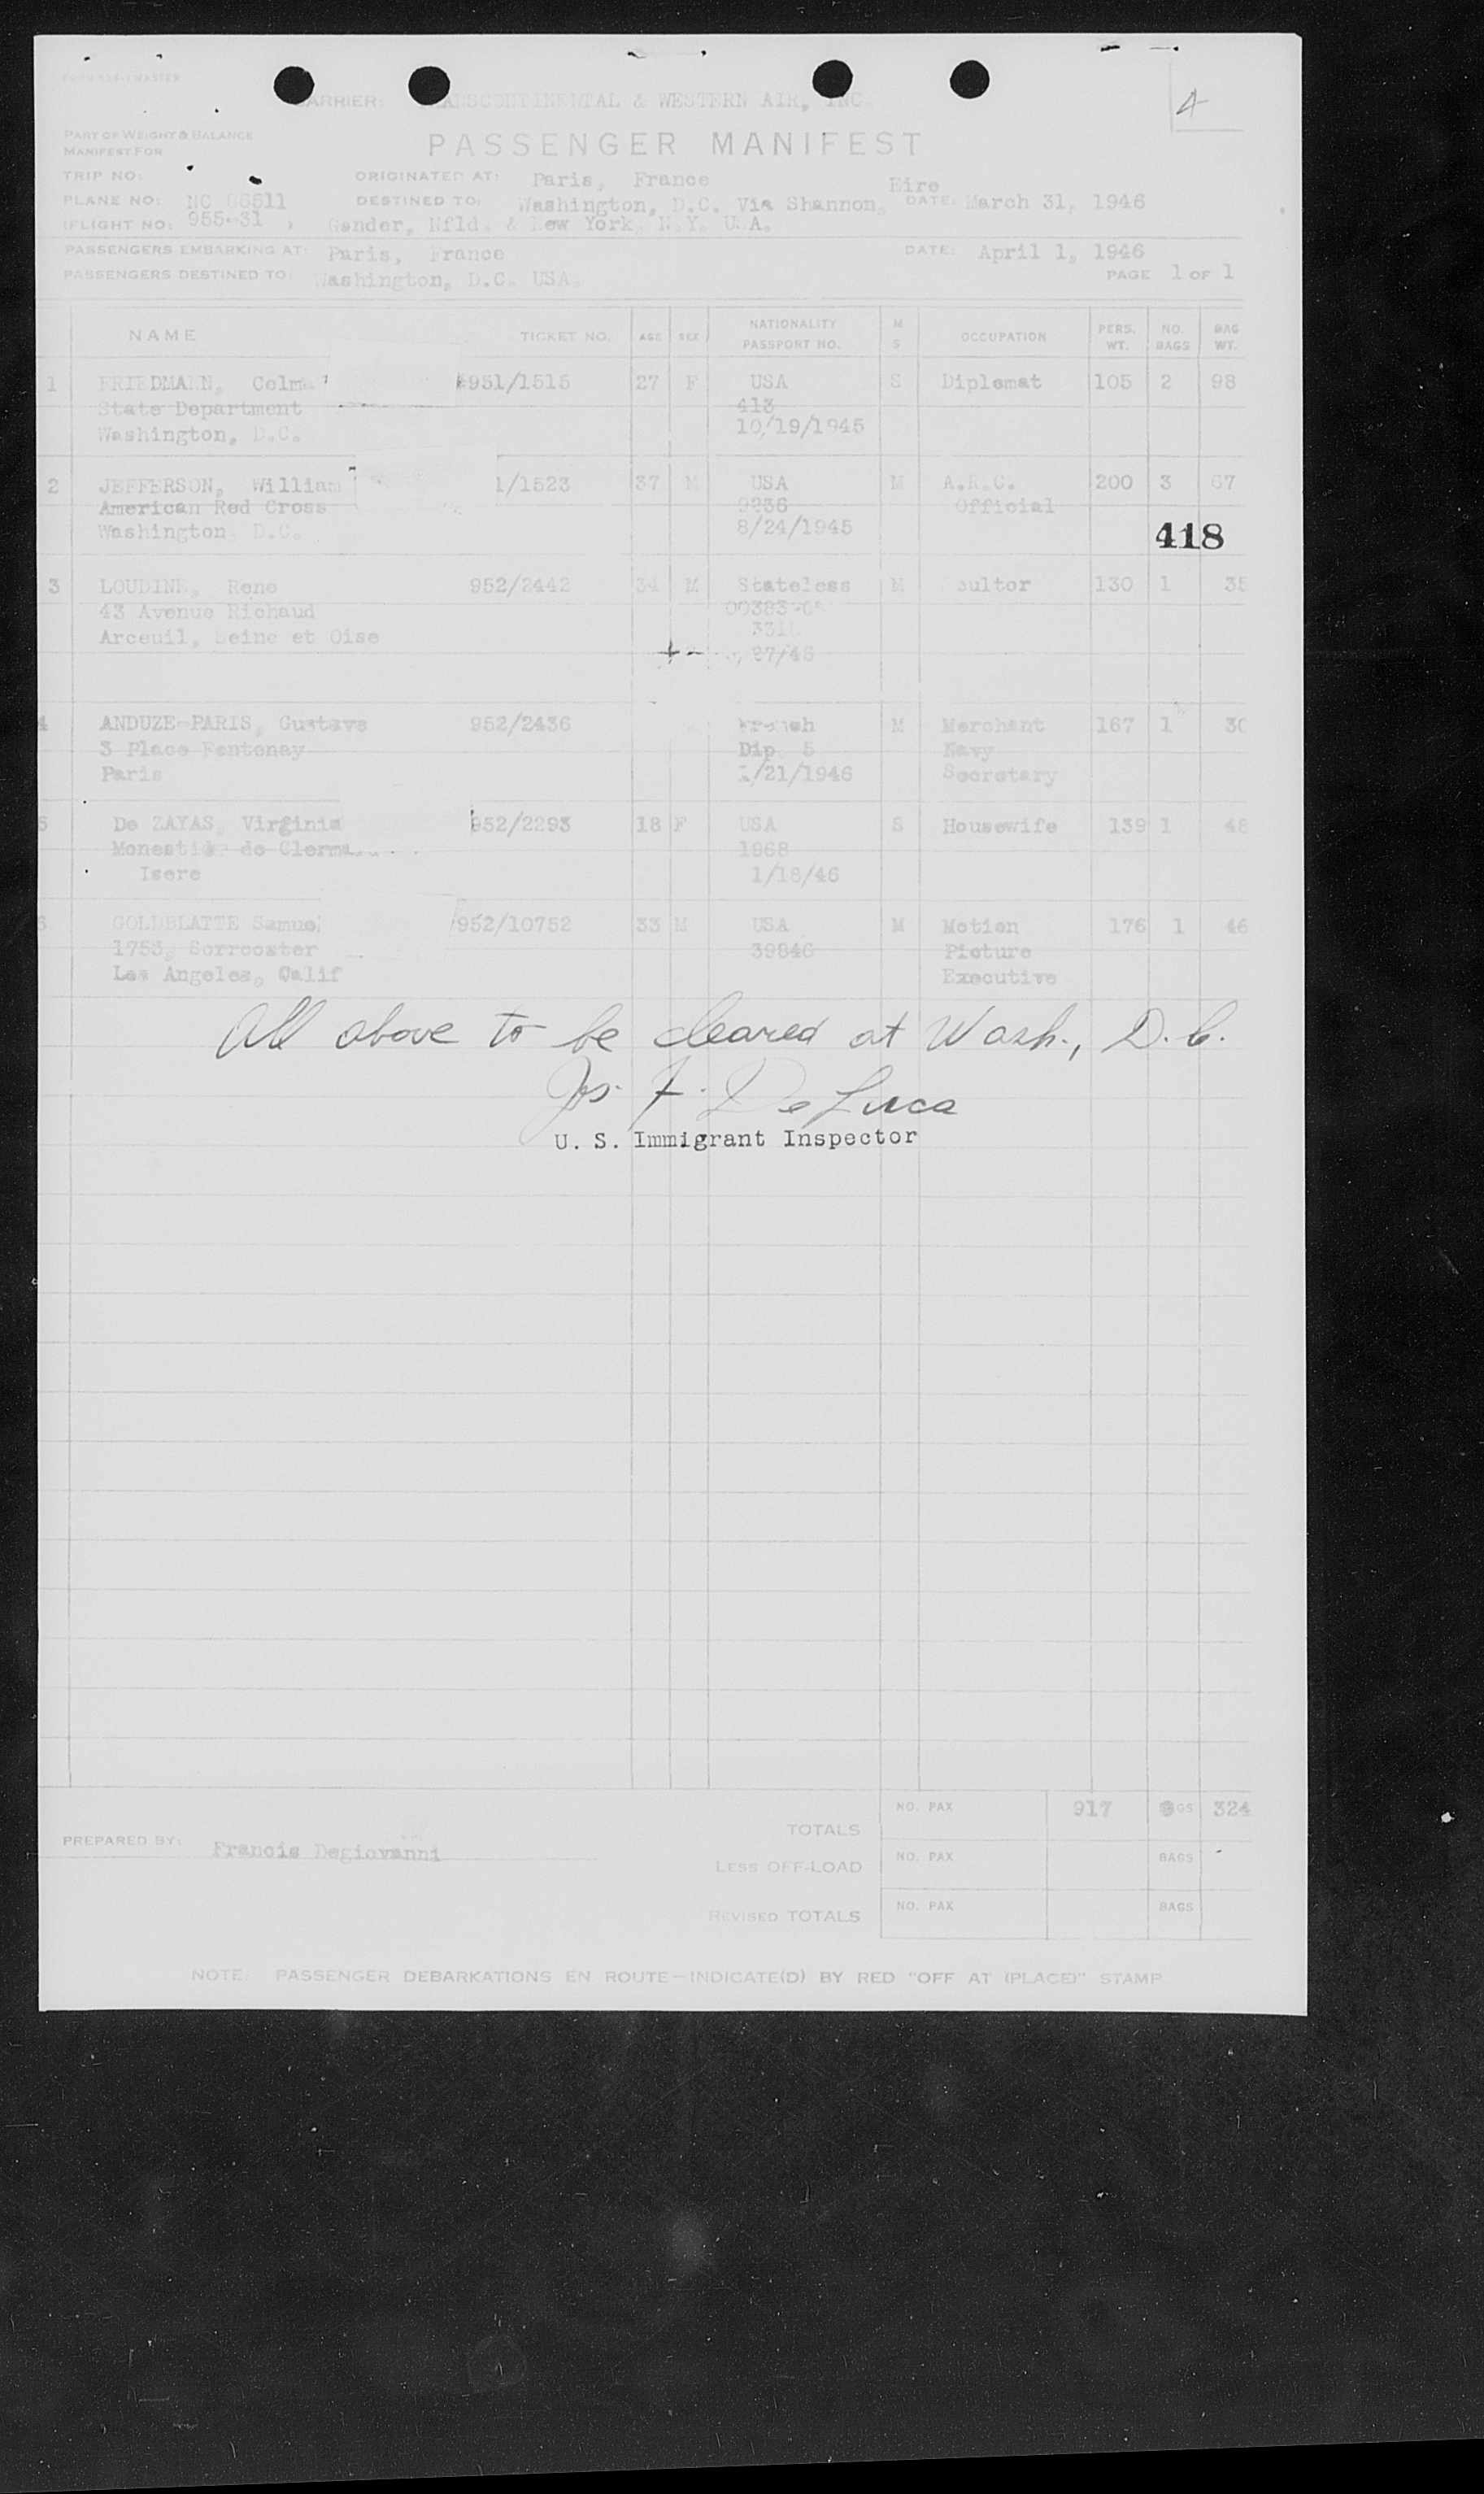 4
CARRIER: TRANSCONTINENTAL & WESTERN AIR, INC.
PART OF WEIGHT & BALANCE
MANIFEST FOR
PASSENGER MANIFEST
TRIP NO:
ORIGINATED AT: Paris, France
Eire
PLANE NO: NC 86511
DESTINED TO: Washington, D.C. Via Shannon, DATE: March 31, 1946
(FLIGHT NO: 955-31 ) Gander, Nfld. & New York, N.Y. U.S.A.
PASSENGERS EMBARKING AT: Paris, France DATE: April 1, 1946
PASSENGERS DESTINED TO: Washington, D.C. USA. PAGE 1 OF 1
NAME TICKET NO. AGE SEX NATIONALITY PASSPORT NO. M S OCCUPATION PERS. WT. NO. BAGS BAG WT.
1 FRIEDMANN, 951/1515 27 F USA S Diplomat 105 2 98
State Department 413
Washington, D.C. 10/19/1945
2 JEFFERSON, William 1/1523 37 M USA M A.R.C. 200 3 67
American Red Cross 9236 Official
Washington D.C. 8/24/1945
418
3 LOUDINE, Rene 952/2442 34 M Stateless M 130 1 35
43 Avenue Richaud
Arceuil, Seine et Oise
27/46
4 ANDUZE-PARIS, Gustave 952/2436 French M Merchant 167 1 30
3 Place Fontenoy Dip 5 Navy
Paris 1/21/1946 Secretary
5 De ZAYAS, Virginia 952/2293 18 F USA S Housewife 139 1 48
Monestier de 1968
Isere 1/18/46
6 GOLDBLATTE Samuel 952/10752 33 M USA M Motion 176 1 46
1753, 39846 Picture
Los Angeles, Calif Executive
All above to be cleared at Wash., D.C.
Jos. F. De Luca
U. S. Immigrant Inspector
NO. PAX 917 9 BAGS 324
TOTALS
PREPARED BY: Francis Degiovanni
NO. PAX BAGS
LESS OFF-LOAD
NO. PAX BAGS
REVISED TOTALS
NOTE: PASSENGER DEBARKATIONS EN ROUTE—INDICATE(D) BY RED "OFF AT (PLACE)" STAMP